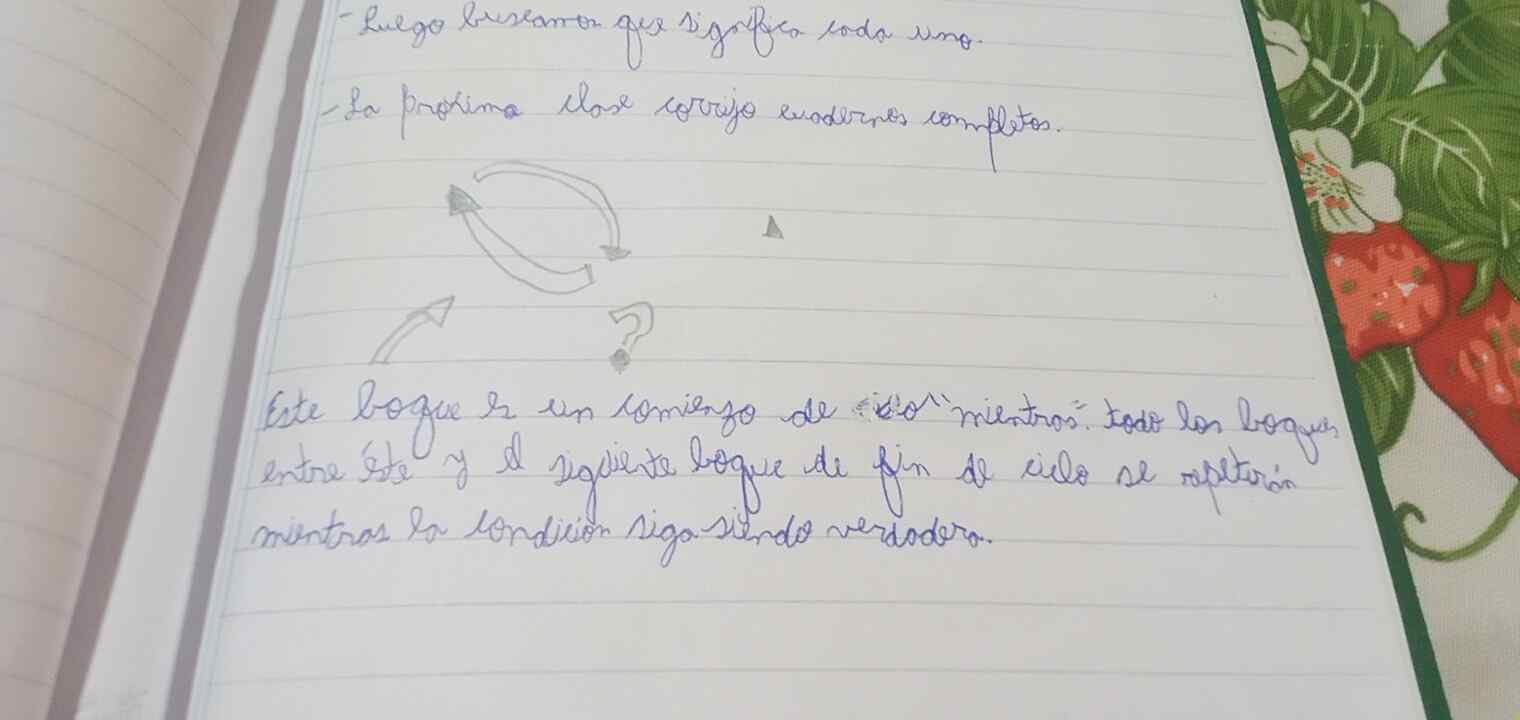 - Luego buscamos que significa cada uno.
- La próxima clase corrijo cuadernos completos.
?
Este boque es un comienzo de ciclo "mientras". todo los boques
entre éste y el sigüiente boque de fin de ciclo se repetirán
mientras la condición siga siendo verdadera.